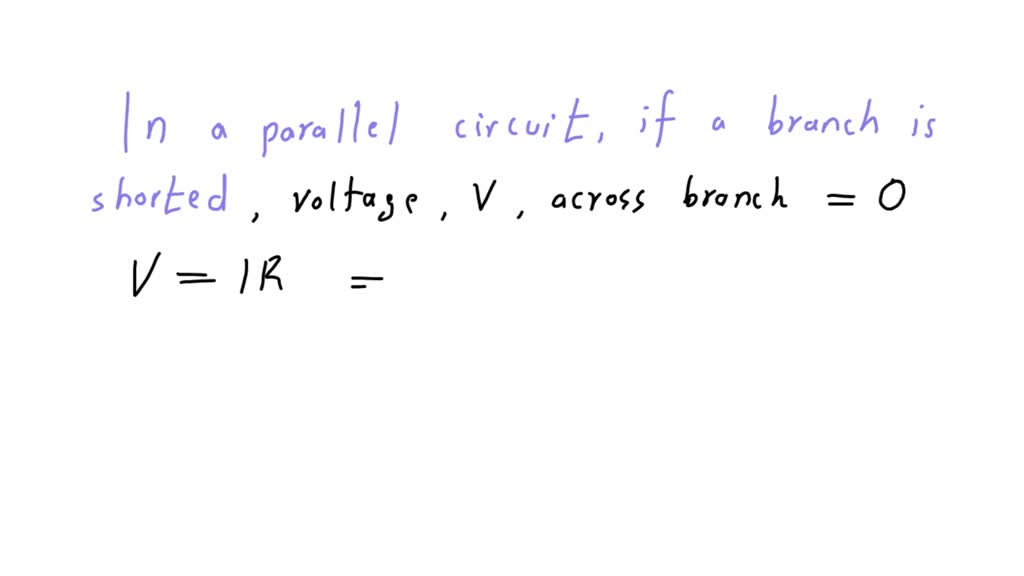 In a parallel circuit, if a branch is
shorted, voltage, V, across branch = 0
V = IR =